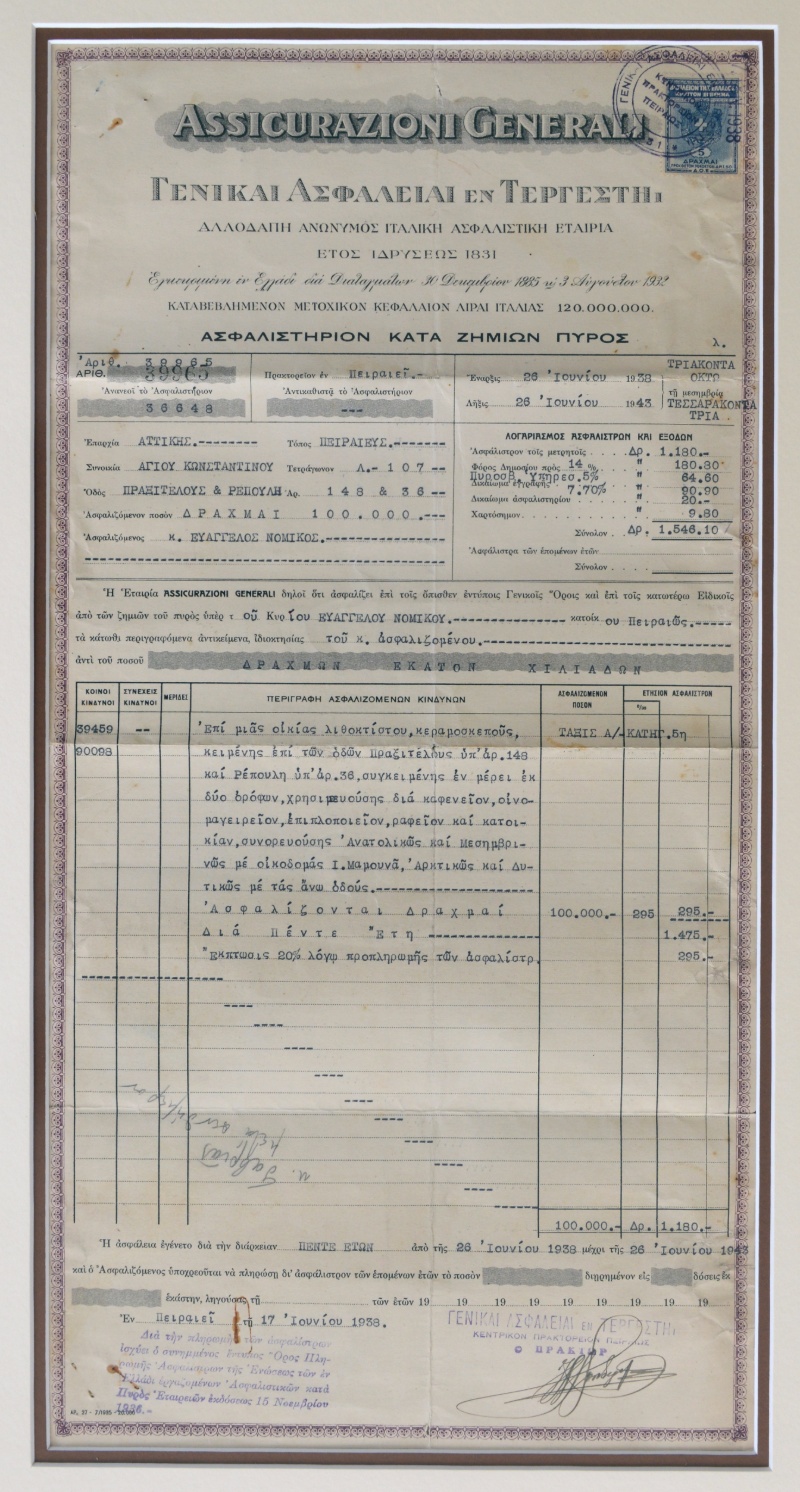 ASSICURAZIONI GENERALI
ΓΕΝΙΚΑΙ ΑΣΦΑΛΕΙΑΙ ΕΝ ΤΕΡΓΕΣΤΗι
ΑΛΛΟΔΑΠΗ ΑΝΩΝΥΜΟΣ ΙΤΑΛΙΚΗ ΑΣΦΑΛΙΣΤΙΚΗ ΕΤΑΙΡΙΑ
ΕΤΟΣ ΙΔΡΥΣΕΩΣ 1831
Ἐγκεκριμένη ἐν Ἑλλάδι διὰ Διαταγμάτων 10 Δεκεμβρίου 1885 καὶ 3 Αὐγούστου 1932
ΚΑΤΑΒΕΒΛΗΜΕΝΟΝ ΜΕΤΟΧΙΚΟΝ ΚΕΦΑΛΑΙΟΝ ΛΙΡΑΙ ΙΤΑΛΙΑΣ 120.000.000.
ΑΣΦΑΛΙΣΤΗΡΙΟΝ ΚΑΤΑ ΖΗΜΙΩΝ ΠΥΡΟΣ
λ.
Ἀριθ. 39965
ΑΡΙΘ. 39965
Ἀνανεοῖ τὸ Ἀσφαλιστήριον
36648
Πρακτορεῖον ἐν Πειραιεῖ.-
Ἀντικαθιστᾷ τὸ Ἀσφαλιστήριον
---
Ἔναρξις 26 Ἰουνίου 1938 ΤΡΙΑΚΟΝΤΑ ΟΚΤΩ
τῇ μεσημβρίᾳ
Λῆξις 26 Ἰουνίου 1943 ΤΕΣΣΑΡΑΚΟΝΤΑ ΤΡΙΑ
Ἐπαρχία ΑΤΤΙΚΗΣ.-------- Τόπος ΠΕΙΡΑΙΕΥΣ.------
Συνοικία ΑΓΙΟΥ ΚΩΝΣΤΑΝΤΙΝΟΥ Τετράγωνον Λ.-107--
Ὁδὸς ΠΡΑΞΙΤΕΛΟΥΣ & ΡΕΠΟΥΛΗ Ἀρ. 148 & 36--
Ἀσφαλιζόμενον ποσὸν ΔΡΑΧΜΑΙ 100.000.---
Ἀσφαλιζόμενος κ. ΕΥΑΓΓΕΛΟΣ ΝΟΜΙΚΟΣ.---------------
ΛΟΓΑΡΙΑΣΜΟΣ ΑΣΦΑΛΙΣΤΡΩΝ ΚΑΙ ΕΞΟΔΩΝ
Ἀσφάλιστρον τοῖς μετρητοῖς Δρ. 1.180.-
Φόρος Δημοσίου πρὸς 14 % " 180.80
Πυροσβ. Ὑπηρεσ. 5% " 64.60
Δικαίωμα ἐγγραφῆς 7.70% " 90.90
Δικαίωμα ἀσφαλιστηρίου " 20.-
Χαρτόσημον " 9.80
Σύνολον Δρ. 1.546.10
Ἀσφάλιστρα τῶν ἑπομένων ἐτῶν
Σύνολον
Ἡ Ἑταιρία ASSICURAZIONI GENERALI δηλοῖ ὅτι ἀσφαλίζει ἐπὶ τοῖς ὄπισθεν ἐντύποις Γενικοῖς Ὅροις καὶ ἐπὶ τοῖς κατωτέρω Εἰδικοῖς
ἀπὸ τῶν ζημιῶν τοῦ πυρὸς ὑπὲρ τοῦ Κυρίου ΕΥΑΓΓΕΛΟΥ ΝΟΜΙΚΟΥ.------------- κατοίκου Πειραιῶς.-----
τὰ κάτωθι περιγραφόμενα ἀντικείμενα, ἰδιοκτησίας τοῦ κ. ἀσφαλιζομένου.------------------
ἀντὶ τοῦ ποσοῦ ΔΡΑΧΜΩΝ ΕΚΑΤΟΝ ΧΙΛΙΑΔΩΝ
ΚΟΙΝΟΙ ΚΙΝΔΥΝΟΙ ΣΥΝΕΧΕΙΣ ΚΙΝΔΥΝΟΙ ΜΕΡΙΔΕΣ ΠΕΡΙΓΡΑΦΗ ΑΣΦΑΛΙΖΟΜΕΝΩΝ ΚΙΝΔΥΝΩΝ ΑΣΦΑΛΙΖΟΜΕΝΟΝ ΠΟΣΟΝ ΕΤΗΣΙΟΝ ΑΣΦΑΛΙΣΤΡΟΝ
39459 -- Ἐπί μιᾶς οἰκίας λιθοκτίστου, κεραμοσκεποῦς, ΤΑΞΙΣ Α/-ΚΑΤΗΓ.5η
90098 κειμένης ἐπί τῶν ὁδῶν Πραξιτέλους ὑπ' ἀρ.148
καί Ρέπουλη ὑπ' ἀρ.36, συγκειμένης ἐν μέρει ἐκ
δύο ὀρόφων, χρησιμευούσης διά καφενεῖον, οἰνο-
μαγειρεῖον, ἐπιπλοποιεῖον, ραφεῖον καί κατοι-
κίαν, συνορευούσης Ἀνατολικῶς καί Μεσημβρι-
νῶς μέ οἰκοδομάς Ι. Μαμουνᾶ, Ἀρκτικῶς καί Δυ-
τικῶς μέ τάς ἄνω ὁδούς.--------------------
Ἀσφαλίζονται Δραχμαί 100.000.- 295 295.-
Διά Πέντε Ἔτη -------------- 1.475.-
Ἔκπτωσις 20% λόγῳ προπληρωμῆς τῶν ἀσφαλίστρ. 295.-
100.000.- Δρ. 1.180.-
Ἡ ἀσφάλεια ἐγένετο διὰ τὴν διάρκειαν ΠΕΝΤΕ ΕΤΩΝ ἀπὸ τῆς 26 Ἰουνίου 1938 μέχρι τῆς 26 Ἰουνίου 1943
καὶ ὁ Ἀσφαλιζόμενος ὑποχρεοῦται νὰ πληρώσῃ δι' ἀσφάλιστρον τῶν ἑπομένων ἐτῶν τὸ ποσὸν διῃρημένον εἰς δόσεις ἐκ
ἑκάστην, ληγούσας τῇ τῶν ἐτῶν 19 19 19 19 19 19 19 19
Ἐν Πειραιεῖ τῇ 17 Ἰουνίου 1938.
ΓΕΝΙΚΑΙ ΑΣΦΑΛΕΙΑΙ ΕΝ ΤΕΡΓΕΣΤΗι
ΚΕΝΤΡΙΚΟΝ ΠΡΑΚΤΟΡΕΙΟΝ ΠΕΙΡΑΙΩΣ
Ο ΠΡΑΚΤΩΡ
Διὰ τὴν πληρωμὴν τῶν ἀσφαλίστρων
ἰσχύει ὁ συνημμένος ἔντυπος Ὅρος Πλη-
ρωμῆς Ἀσφαλίστρων τῆς Ἑνώσεως τῶν ἐν
Ἑλλάδι ἐργαζομένων Ἀσφαλιστικῶν κατὰ
Πυρὸς Ἑταιρειῶν ἐκδόσεως 15 Νοεμβρίου
1936.-